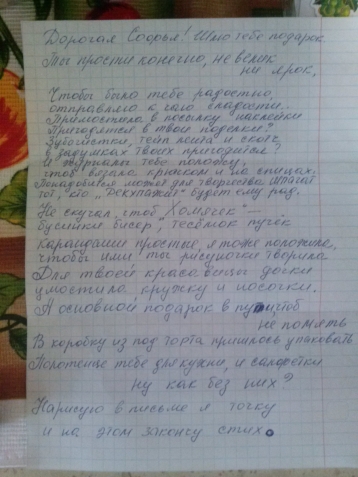 Дорогая Софья! Шлю тебе подарок.
Ты прости конечно, не велик
ни ярок,
Чтобы было тебе радостно,
отправляю к чаю сладости.
Примостила в посылку наклейки
Пригодятся в твои поделки?
Зубочистки, гель лента и скотч
в задумках твоих пригодится?
И журналы тебе положу,
чтоб вязала крючком и на спицах.
Понадобился может для творчества шпагат
тот, кто "Декупажит" будет ему рад.
Не скучал, чтоб "Хомячек" —
бусинки бисер, тесёмок пучок
Карандаши простые, я тоже положила,
чтобы ими ты рисуночки творила
Для твоей красавицы дочки
уместила кружку и носочки.
А основной подарок в пути чтоб
не помять
В коробку из под торта пришлось упаковать
Полотенце тебе для кухни, и салфетки
ну как без них?
Нарисую в письме я точку
и на этом закончу стих.